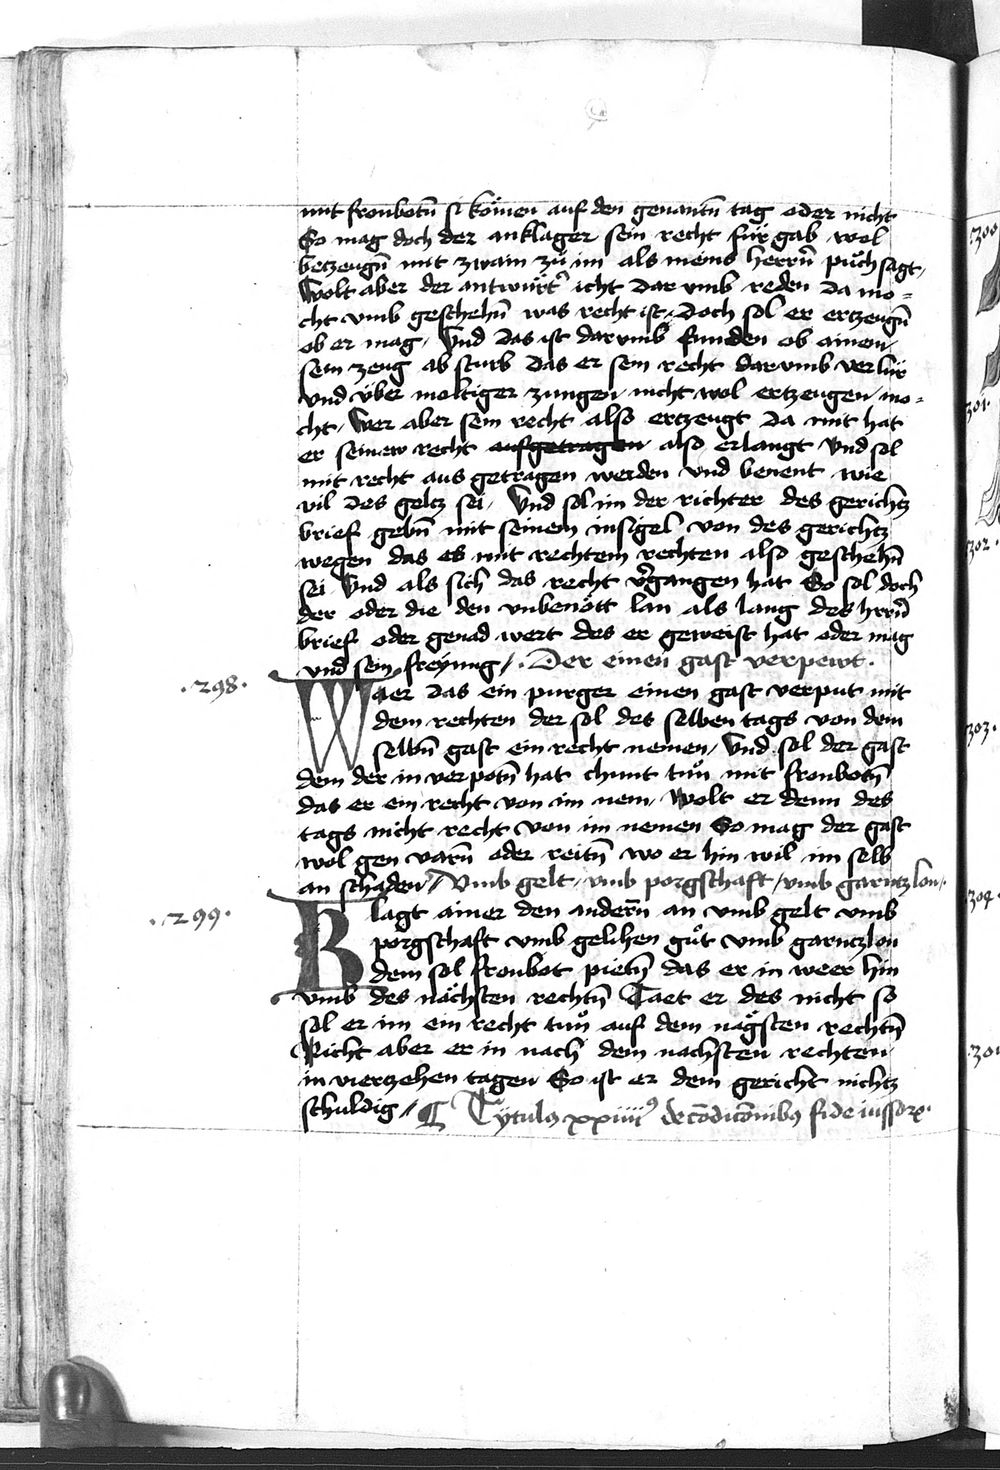 mit fronbotn̄ si kömen auf den genantn̄ tag oder nicht
So mag doch der anklager sein recht für gab wol
betzeugn̄ mit zwain zů im als meins herrn̄ půch sagt,
Wolt aber der antwurt̉ icht dar vmb reden da mo=
cht vmb geschehn̄ was recht ist, doch sol er ertzeugn̄
ob er mag, Vnd das ist darvmb funden ob ainem
sein zeug ab sturb das er sein recht darvmb verlür
vnd über moltiger zungen nicht wol ertzeugen mo=
cht, Wer aber sein recht also ertzeugt da mit hat
er seinew recht aufgetragen also erlangt Vnd sol
mit recht aus getragen werden vnd benent wie
vil des geltz sei, Vnd sol im der richter des gerichtz
brief gebn̄ mit seinem insigel von des gerichtz
wegen das es mit rechtem rechten also geschehn̄
sei Vnd als sich das recht v̉gangen hat So sol doch
der oder die den vnbenött lan als lang des hrrn̄
brief oder genad wert des er geweist hat oder mag
vnd sein freÿung,. Der einen gast verpewt.
.298.
Waer das ein purger einen gast verput mit
dem rechten der sol des selben tags von dem
selbn̄ gast ein recht nemen, Vnd sol der gast
dem der in verpotn̄ hat chunt tůn mit fronbotn̄
das er ein recht von im nem, Wolt er denn des
tags nicht recht von im nemen So mag der gast
wol gen varn̄ oder reitn̄ wo er hin wil im selb
an schaden, Vmb gelt, vmb porgschaft, vmb garntzlon,.
.299.
Klagt ainer den andern̄ an vmb gelt vmb
porgschaft vmb gelihen gůt vmb garntzlon
dem sol fronbot pietn̄ das er in weer hin
vmb des nächsten rechtn̄ Taet er des nicht so
sol er im ein recht tůn auf dem nägsten rechtn̄
Richt aber er in nach dem nachsten rechten
in viertzehen tagen So ist er dem gericht nichtz
schuldig, ¶ Tytulus xxiiii⁹
300
301.
302.
303.
304.